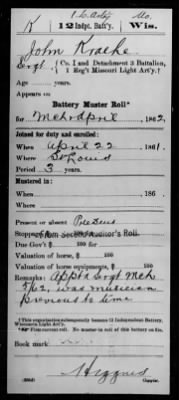 1 L. Arty Mo.
K | 12 Indpt. Bat'y. | Wis.
John Kracke
Sergt, Co. I and Detachment 3 Battalion,
1 Reg't Missouri Light Art'y.*
Age years.
Appears on
Battery Muster Roll*
for Mch & April, 1862.
Joined for duty and enrolled:
When April 22, 1861.
Where St Louis
Period 3 years.
Mustered in:
When , 186 .
Where
Present or absent Present
Stoppage, $ 100 for
Due Gov't $ 100 for
Valuation of horse, $ 100
Valuation of horse equipments, $ 100
Remarks: Appt'd Sergt Mch
5/62, was musician
previous to time
*This organization subsequently became 12 Independent Battery,
Wisconsin Light Art'y.
Book mark:
Copyist.